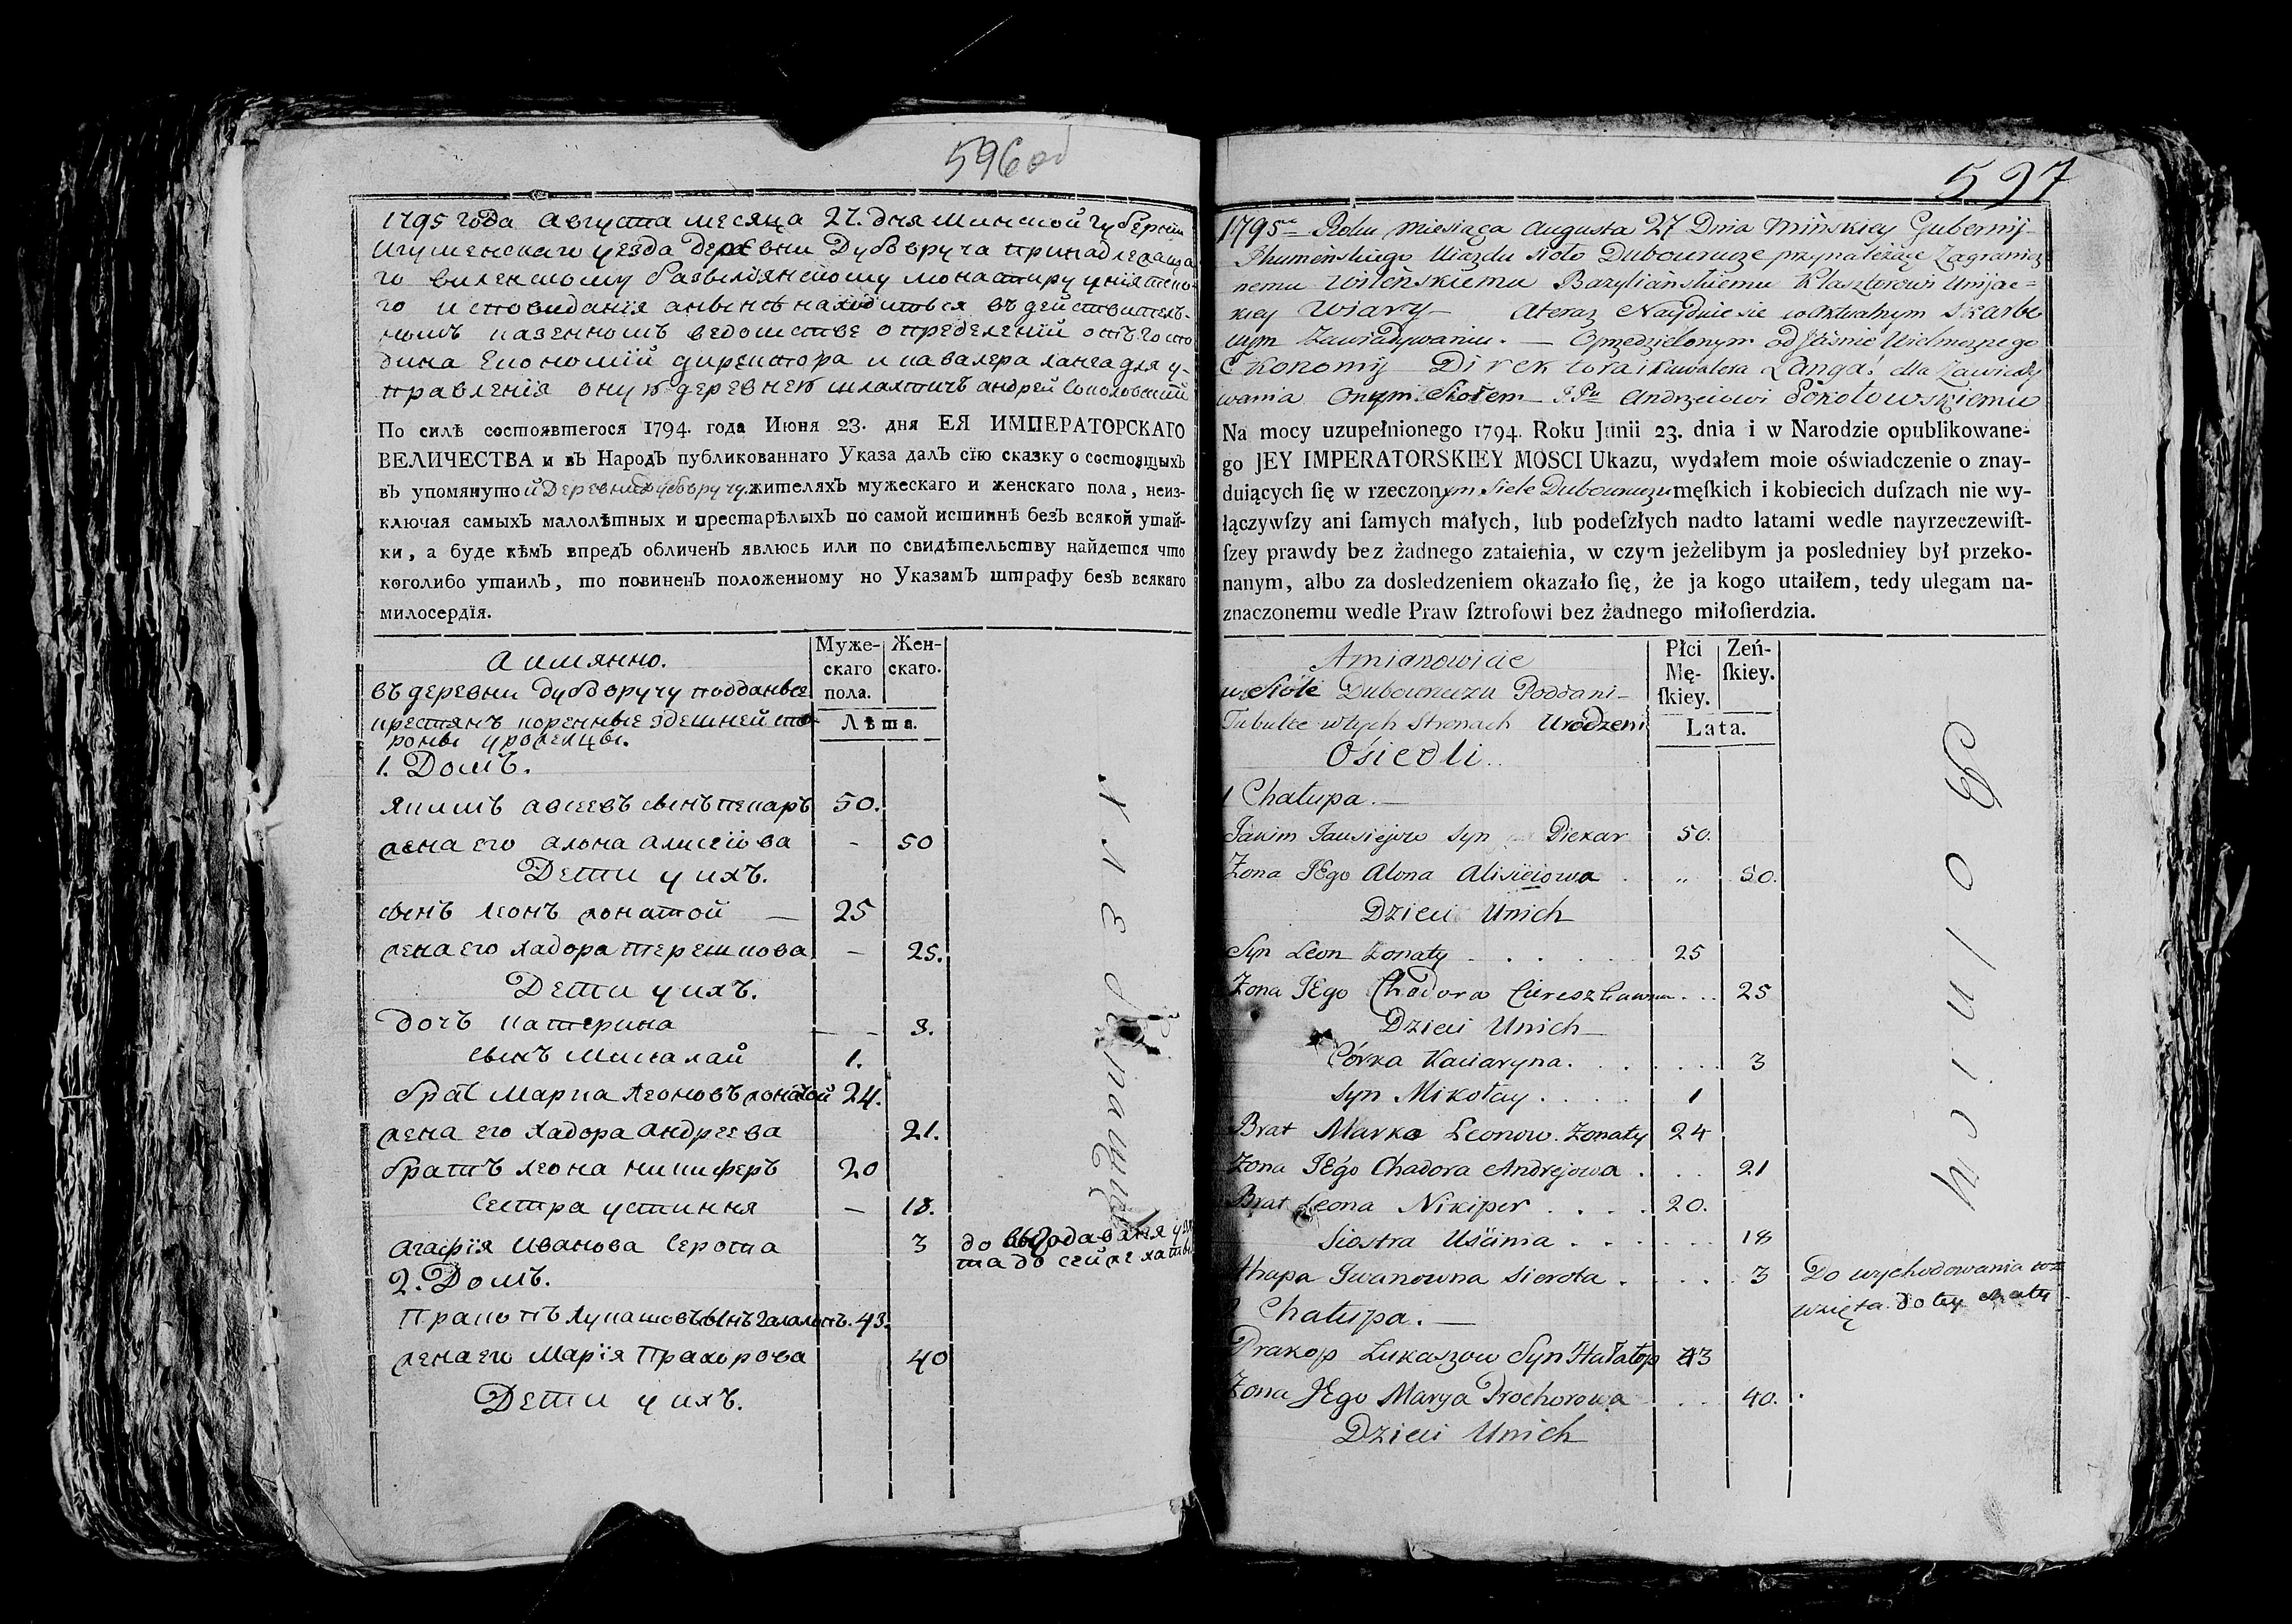 596 об
1795 года августа месяца 27. дня Минской губернии
Игуменскаго уезда деревни Дубовруча принадлежаща
го виленскому базвилиянскому монастиру унiятско-
го исповиданiя а ныне находитовся въ действитель-
номъ казенномъ ведомстве о пределенiй отъ госпо
дина Економiй директора и кавалера ланга для у-
правленiя оную деревнею шляхтичъ андрей Соколовский
По силѣ состоявшегося 1794. года Июня 23. дня ЕЯ ИМПЕРАТОРСКАГО
ВЕЛИЧЕСТВА и въ НародЪ публикованнаго Указа далЪ сїю сказку о состоящыхЪ
въ упомянутой деревни дубовручу жителяхЪ мужескаго и женскаго пола, неиз-
ключая самыхЪ малолѣтных и престарѣлыхЪ по самой истиннѣ безЪ всякой утай-
ки, а буде кѣмЪ впредЪ обличенЪ явлюсь или по свидѣтельству найдется что
коголибо утаилЪ, то повиненЪ положенному по УказамЪ штрафу безЪ всякаго
милосердїя.
Муже-
скаго
пола.
Жен-
скаго.
Лѣта.
А имянно.
въ деревни дубовручу подданые
крестянъ коренные здешней сто-
роны уроженцы.
1. Домъ.
якимъ авсеевъ сынъ пекаръ 50.
жена его алiона алисеiова - 50
Дети у ихъ.
сынъ леонъ жонатой — 25
жена его хадора терешкова — 25.
Дети у ихъ.
дочъ катерина — - 3.
сынъ микалай 1.
братъ марка леоновъ жонатой 24.
жена его хадора андреева 21.
братъ леона никиферъ 20
Сестра устиння — 18.
агафiя иванова серота 3 до выходаванiя узя
та до сей же хаты
2. Домъ.
Пракопъ лукашовъ сынъ галалопъ. 43.
жена его марiя прахорова 40
Дети у ихъ.
597
1795 Roku miesiąca Augusta 27 Dnia Mińskiey Gubernij
Ihumeńskiego Uiazdu sioło Dubowrucze przynależące Zagranicz
nemu Wileńskiemu Bazyliańskiemu Klasztorowi Unijac=
kiey Wiary — A teraz Nayduie sie w aktualnym Skarbo
wym Zawiadywaniu. — Opredzielonym od Jaśnie Wielmożnego
Ekonomij Direktora i Kawalera Langa: dla Zawiedy
wania Onym Siołem — J Pu Andrzeiowi Sokołowskiemu
Na mocy uzupełnionego 1794. Roku Junii 23. dnia i w Narodzie opublikowane-
go JEY IMPERATORSKIEY MOSCI Ukazu, wydałem moie oświadczenie o znay-
duiących ſię w rzeczonym Siele Dubowruczu męſkich i kobiecich duſzach nie wy-
łączywſzy ani ſamych małych, lub podeſzłych nadto latami wedle nayrzeczewiſt-
ſzey prawdy bez żadnego zataienia, w czym jeżelibym ja posledniey był przeko-
nanym, albo za dosledzeniem okazało ſię, że ja kogo utaiłem, tedy ulegam na-
znaczonemu wedle Praw ſztrofowi bez żadnego miłoſierdzia.
Płci
Mę-
ſkiey.
Zeń-
ſkiey.
Lata.
Amianowicie
w Siole Dubowruczu Poddani —
Tubulce w tych Stronach Urodzeni
Osiedli.
1 Chałupa. —
Jakim Jausiejow Syn Piekar 50.
Zona JEgo Alona Alisieiowa . „ 50.
Dzieci Unich
Syn Leon Zonaty 25
Zona JEgo Chadora Ciereszkawna . . . 25
Dzieci Unich —
Córka Kaciaryna . . . 3
Syn Mikołay . . . 1
Brat Marka Leonow. Zonaty 24
Zona JEgo Chadora Andrejowa . . . 21
Brat Leona Nikiper . . . . 20.
Siostra Uścinia . . . 18
Ahapa Iwanowna Sierota . . . 3 Do wychodowania
wzięta do tey chaty
2 Chałupa. —
Prakop Łukaszow Syn Hałałop 43
Zona JEgo Marya Prochorowa . . 40.
Dzieci Unich